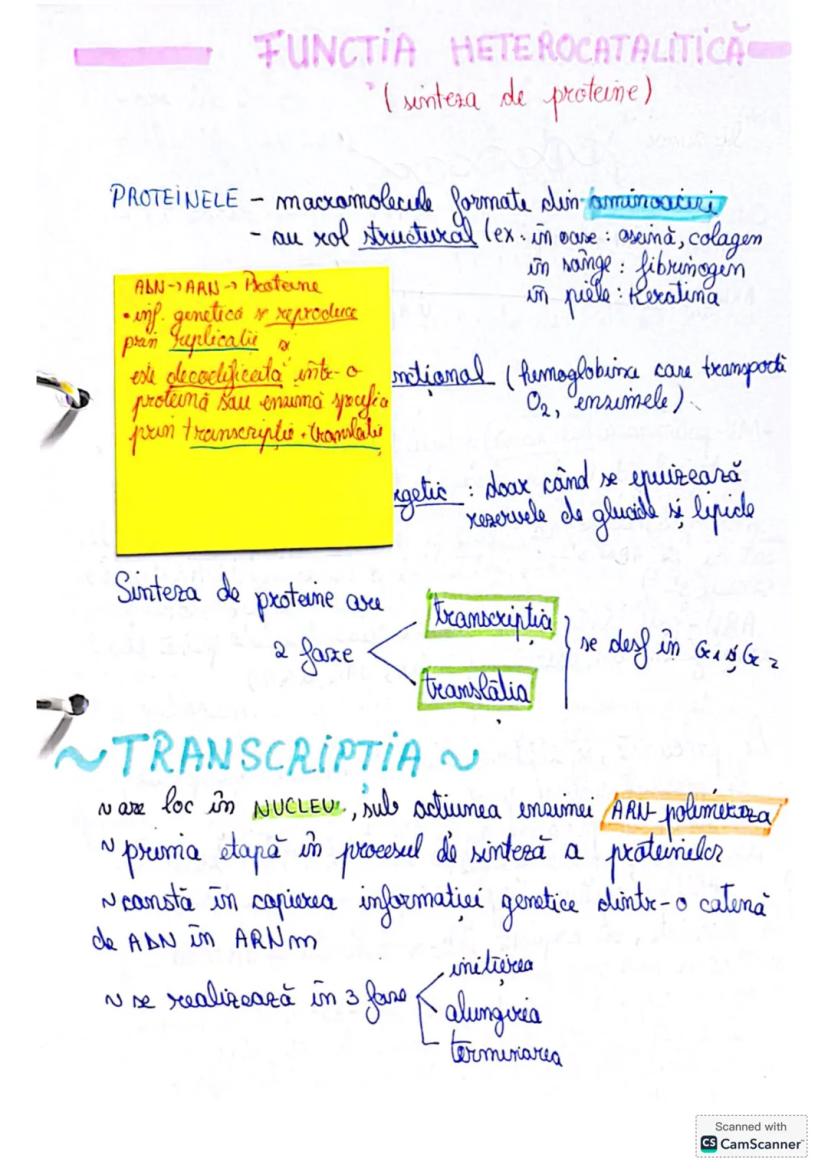 FUNCTIA HETEROCATALITICĂ
(sinteza de proteine)
PROTEINELE - macromolecule formate din aminoacizi
- au rol structural (ex. în oase: oseină, colagen
în sânge: fibrinogen
în piele: Keratina
ADN→ARN→Proteine
• inf. genetică se reproduce
prin replicație și
este decodificată într-o
proteină sau enzimă specifică
prin transcripție + translație
ncțional (hemoglobina care transportă
O2, enzimele)
rgetic: doar când se epuizează
rezervele de glucide și lipide
Sinteza de proteine are
2 faze
transcripția
translația
se desf în G1 și G2
~TRANSCRIPTIA~
~ are loc în NUCLEU, sub acțiunea enzimei ARN-polimeraza
~ prima etapă în procesul de sinteză a proteinelor
~ constă în copierea informației genetice dintr-o catenă
de ADN în ARNm
~ se realizează în 3 faze
inițierea
alungirea
terminarea
Scanned with
CS CamScanner